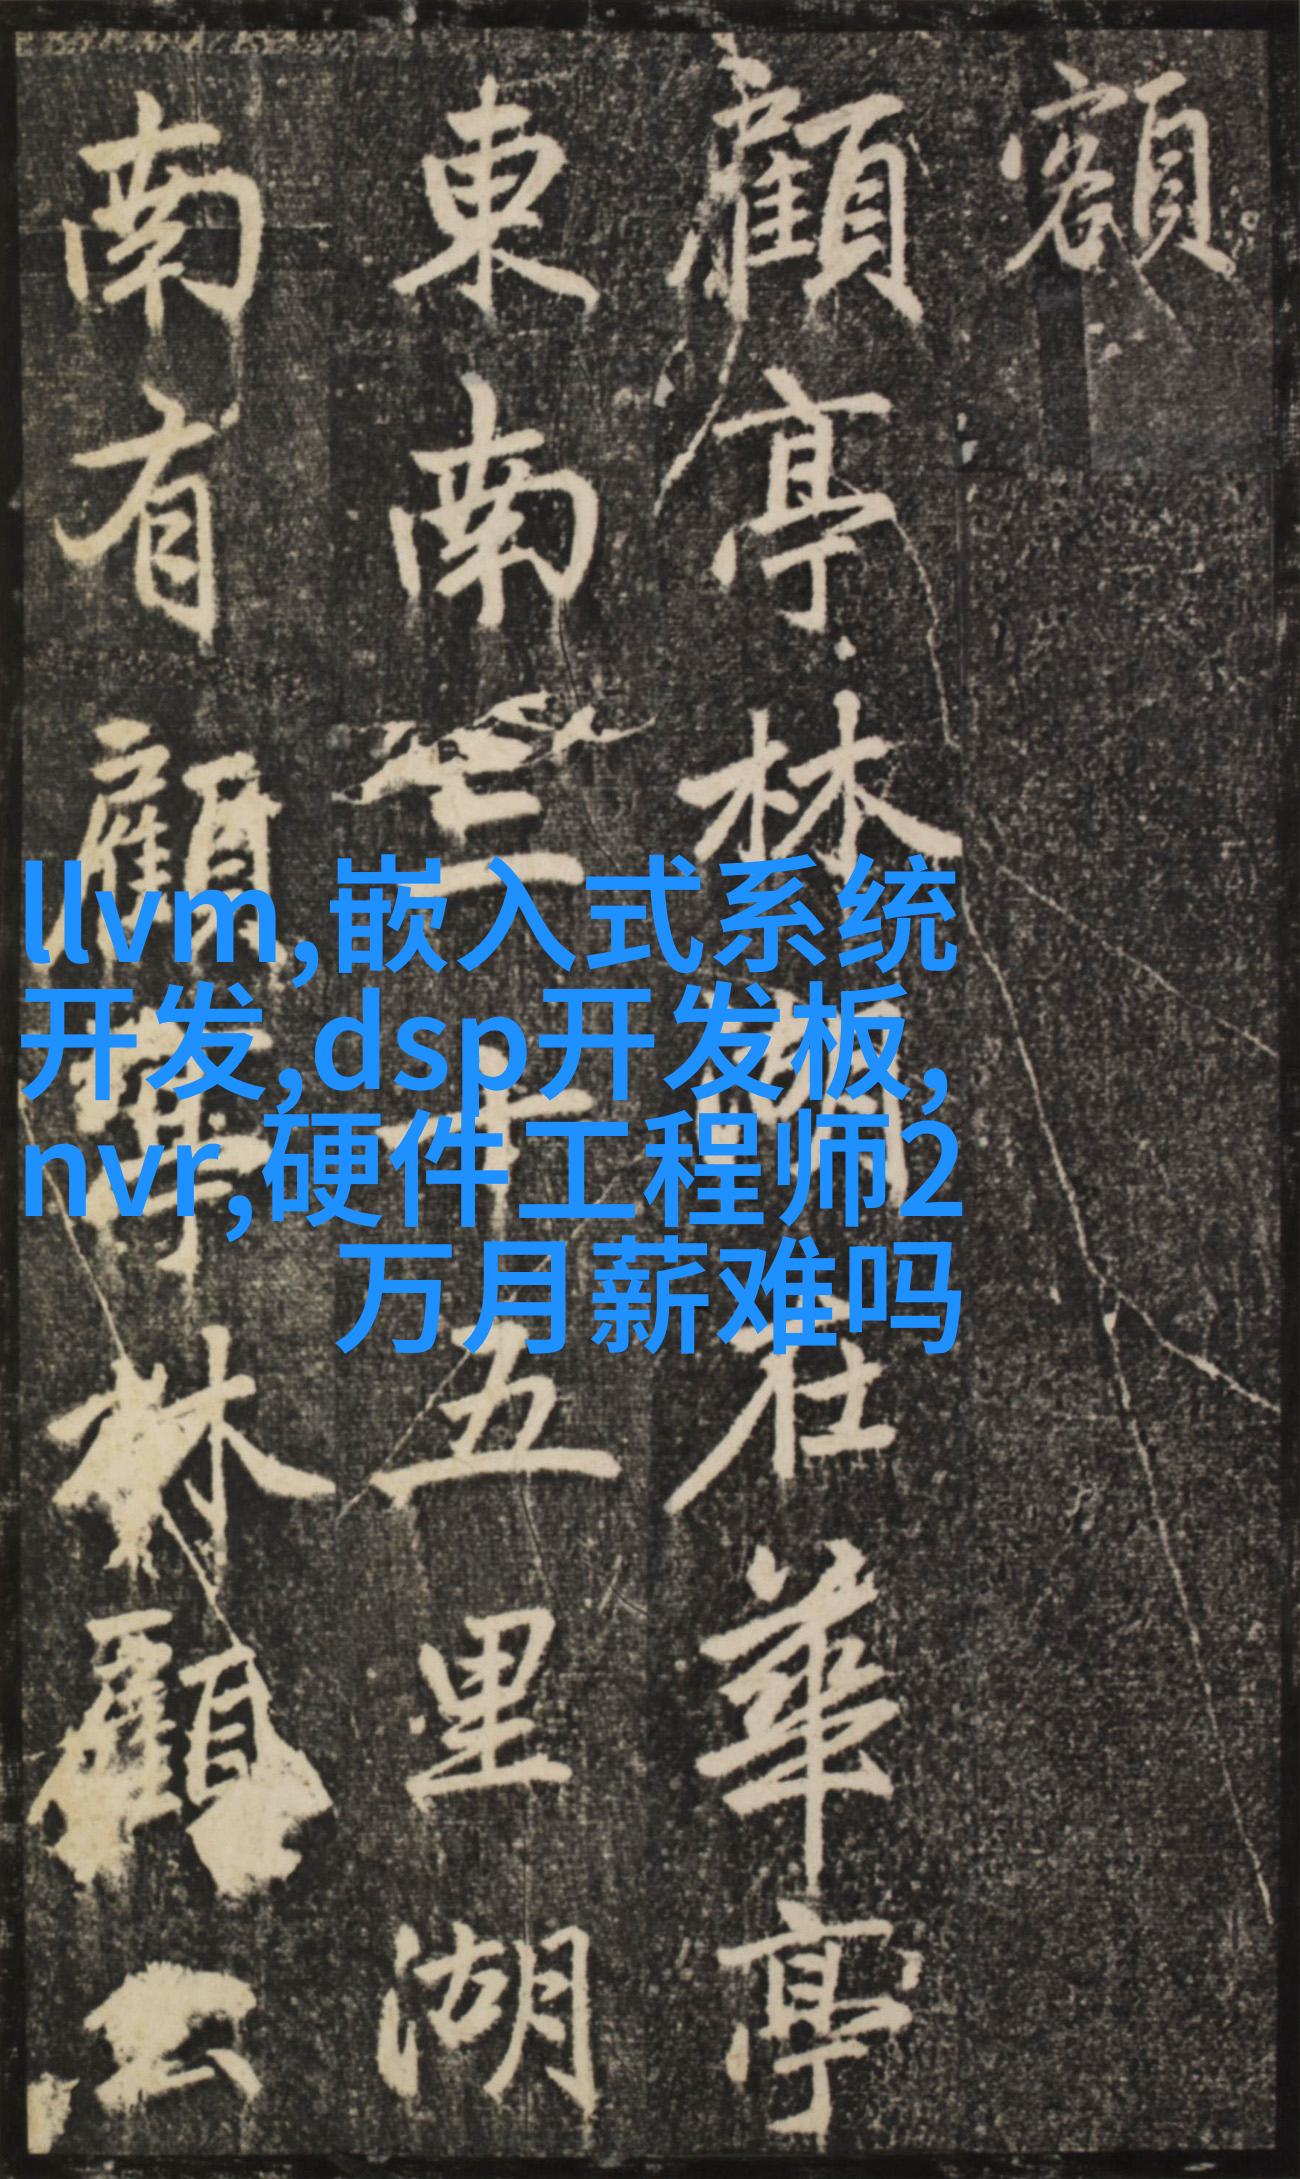 額
顧亭林湖在華亭
東南三十五里湖
南有顧亭林顧公
llvm,嵌入式系统
开发,dsp开发板,
nvr,硬件工程师2
万月薪难吗